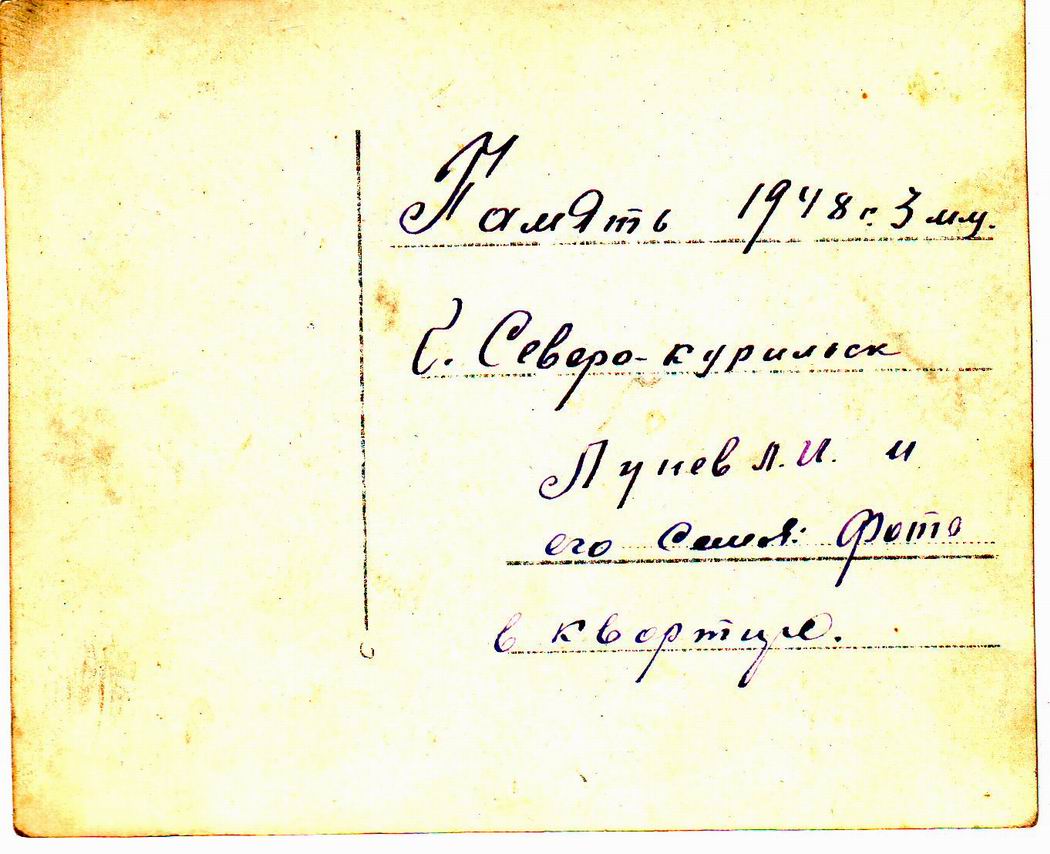 Память 1948 г. 3
г. Северо-курильск
Лунев Л.И. и
его семья: Фото
в квартире.